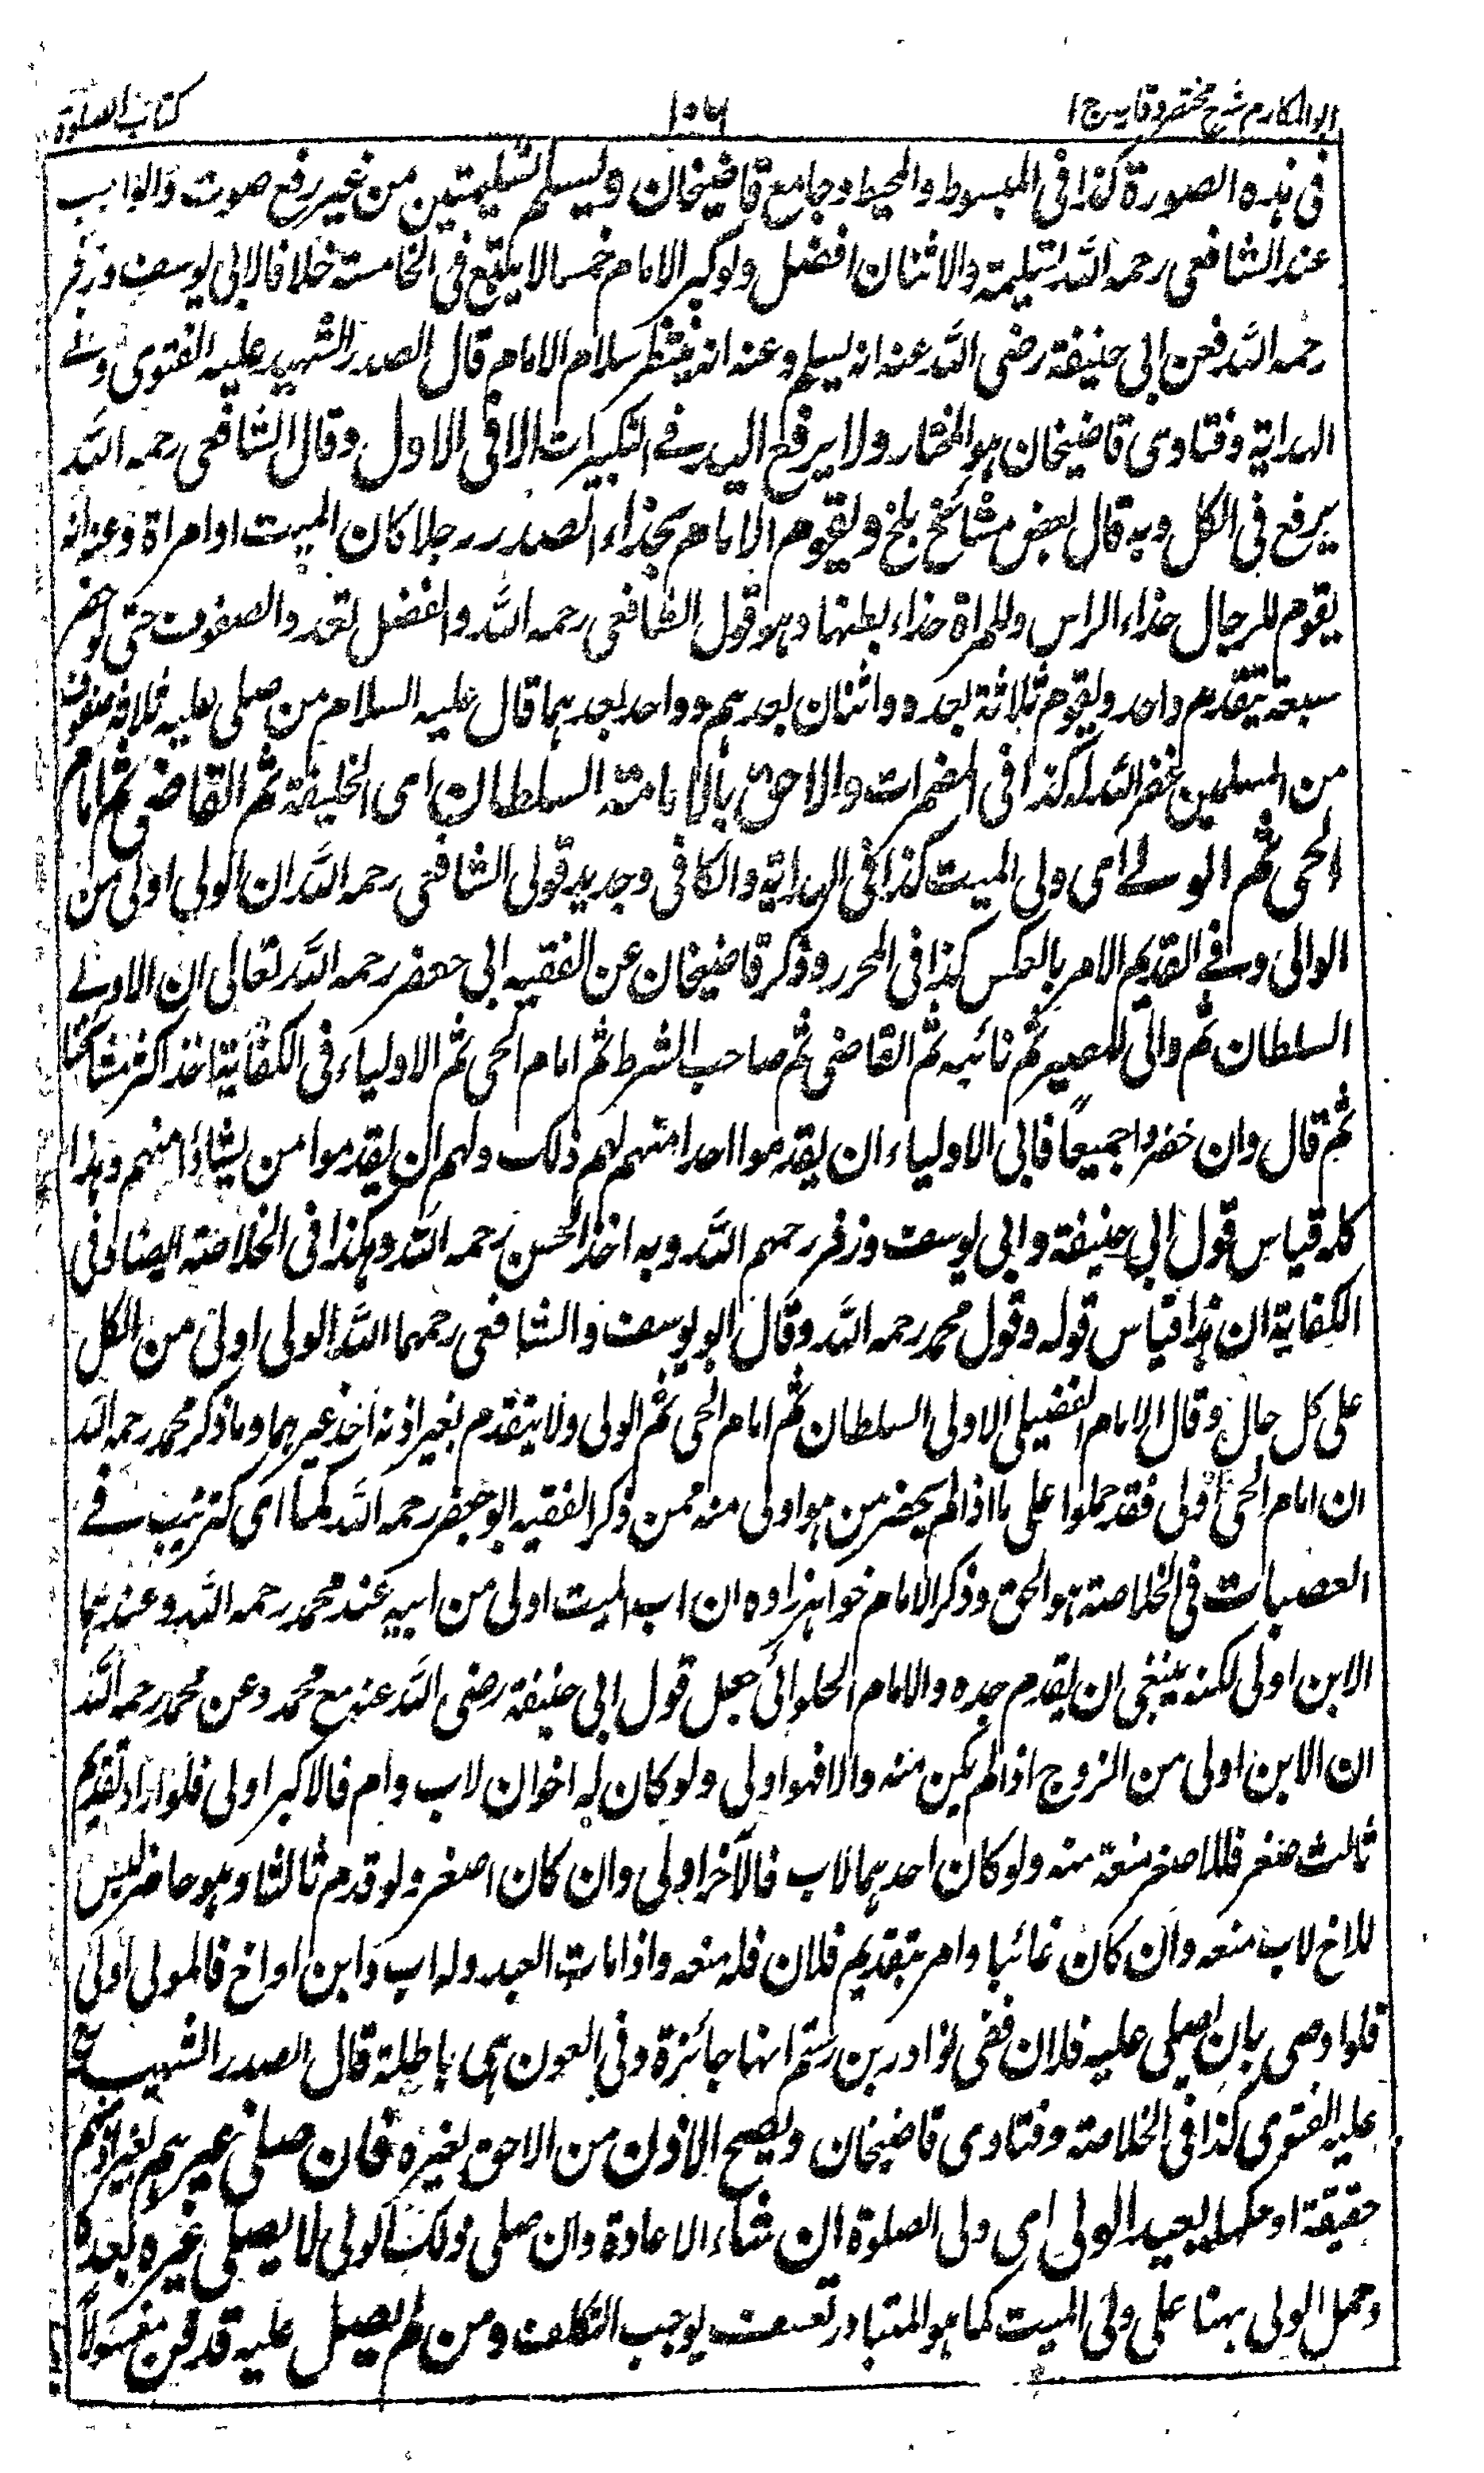 ابو المکارم شرح مختصر وقایه ج ا
۱۵۶
کتاب الصلوة
فی هذه الصورة کذا فی المبسوط والمحیط وجامع قاضیخان ویسلم تسلیمتین من غیر رفع صوت والواجب
عند الشافعی رحمه الله تسلیمة والاثنان افضل ولو کبر الامام خمسا لا یتبع فی الخامسة خلافا لابی یوسف وزفر
رحمه الله فعن ابی حنیفة رضی الله عنه انه یسلم وعنه انه ینتظر سلام الامام قال الصدر الشهید علیه الفتوی وفی
الهدایة وفتاوی قاضیخان هو المختار ولا یرفع الید فی التکبیرات الا فی الاول وقال الشافعی رحمه الله
یرفع فی الکل وبه قال بعض مشائخ بلخ ویقوم الامام بحذاء الصدر رجلا کان المیت او امراة وعنه انه
یقوم للرجال حذاء الراس وللمراة حذاء بطنها وهو قول الشافعی رحمه الله وافضل تعدد الصفوف حتی لو حضر
سبعة یتقدم واحد ویقوم ثلاثة بعده واثنان بعدهم وواحد بعدهما قال علیه السلام من صلی علیه ثلاثة صفوف
من المسلمین غفر الله له کذا فی المضمرات والاحق بالامامة السلطان ای الخلیفة ثم القاضی ثم امام
الحی ثم الولی ای ولی المیت کذا فی الهدایة والکافی وجدید قول الشافعی رحمه الله ان الولی اولی من
الوالی وفی القدیم الامر بالعکس کذا فی المحرر وذکر قاضیخان عن الفقیه ابی جعفر رحمه الله تعالی ان الاولی
السلطان ثم والی المصر ثم نائبه ثم القاضی ثم صاحب الشرط ثم امام الحی ثم الاولیاء فی الکفایة اخذ اکثر مشائخنا
ثم قال وان حضروا جمیعا فابی الاولیاء ان یقدموا احدا منهم لهم ذلک ولهم ان یقدموا من یشاؤا منهم وهذا
کله قیاس قول ابی حنیفة وابی یوسف وزفر رحمهم الله وبه اخذ الحسن رحمه الله وهکذا فی الخلاصة ایضا وفی
الکفایة ان هذا قیاس قوله وقول محمد رحمه الله وقال ابو یوسف والشافعی رحمهما الله الولی اولی من الکل
علی کل حال وقال الامام الفضیلی الاولی السلطان ثم امام الحی ثم الولی ولا یتقدم بغیر اذنه احد غیرهما وما ذکر محمد رحمه الله
ان امام الحی اولی فقد حملوا علی ما اذا لم یحضر من هو اولی منه ممن ذکر الفقیه ابو جعفر رحمه الله کما ای کترتیب فی
العصبات فی الخلاصة هو الحق وذکر الامام خواهرزاده ان اب المیت اولی من ابیه عند محمد رحمه الله وعندهما
الابن اولی لکنه ینبغی ان یقدم جده والامام الحلوائی جعل قول ابی حنیفة رضی الله عنه مع محمد وعن محمد رحمه الله
ان الابن اولی من الزوج اذا لم یکن منه والا فهو اولی ولو کان له اخوان لاب وام فالاکبر اولی فلو اراد تقدیم
ثالث صغر فللاصغر منعه منه ولو کان احدهما لاب فالآخر اولی وان کان اصغر ولو قدم ثالثا وهو حاضر لیس
للاخ لاب منعه وان کان غائبا وامر بتقدیم فلان فله منعه واذا مات العبد وله اب وابن او اخ فالمولی اولی
فلو اوصی بان یصلی علیه فلان ففی نوادر بن رستم انها جائزة وفی العون هی باطلة قال الصدر الشهید
علیه الفتوی کذا فی الخلاصة وفتاوی قاضیخان ویصح الاذن من الاحق لغیره فان صلی غیرهم بغیر اذنهم
حقیقة او حکما یعید الولی ای ولی الصلوة ان شاء الاعادة وان صلی ذلک الولی لا یصلی غیره بعده
وحمل الولی ههنا علی ولی المیت کما هو المتبادر تعسف یوجب التکلف ومن لم یصل علیه قد دفن